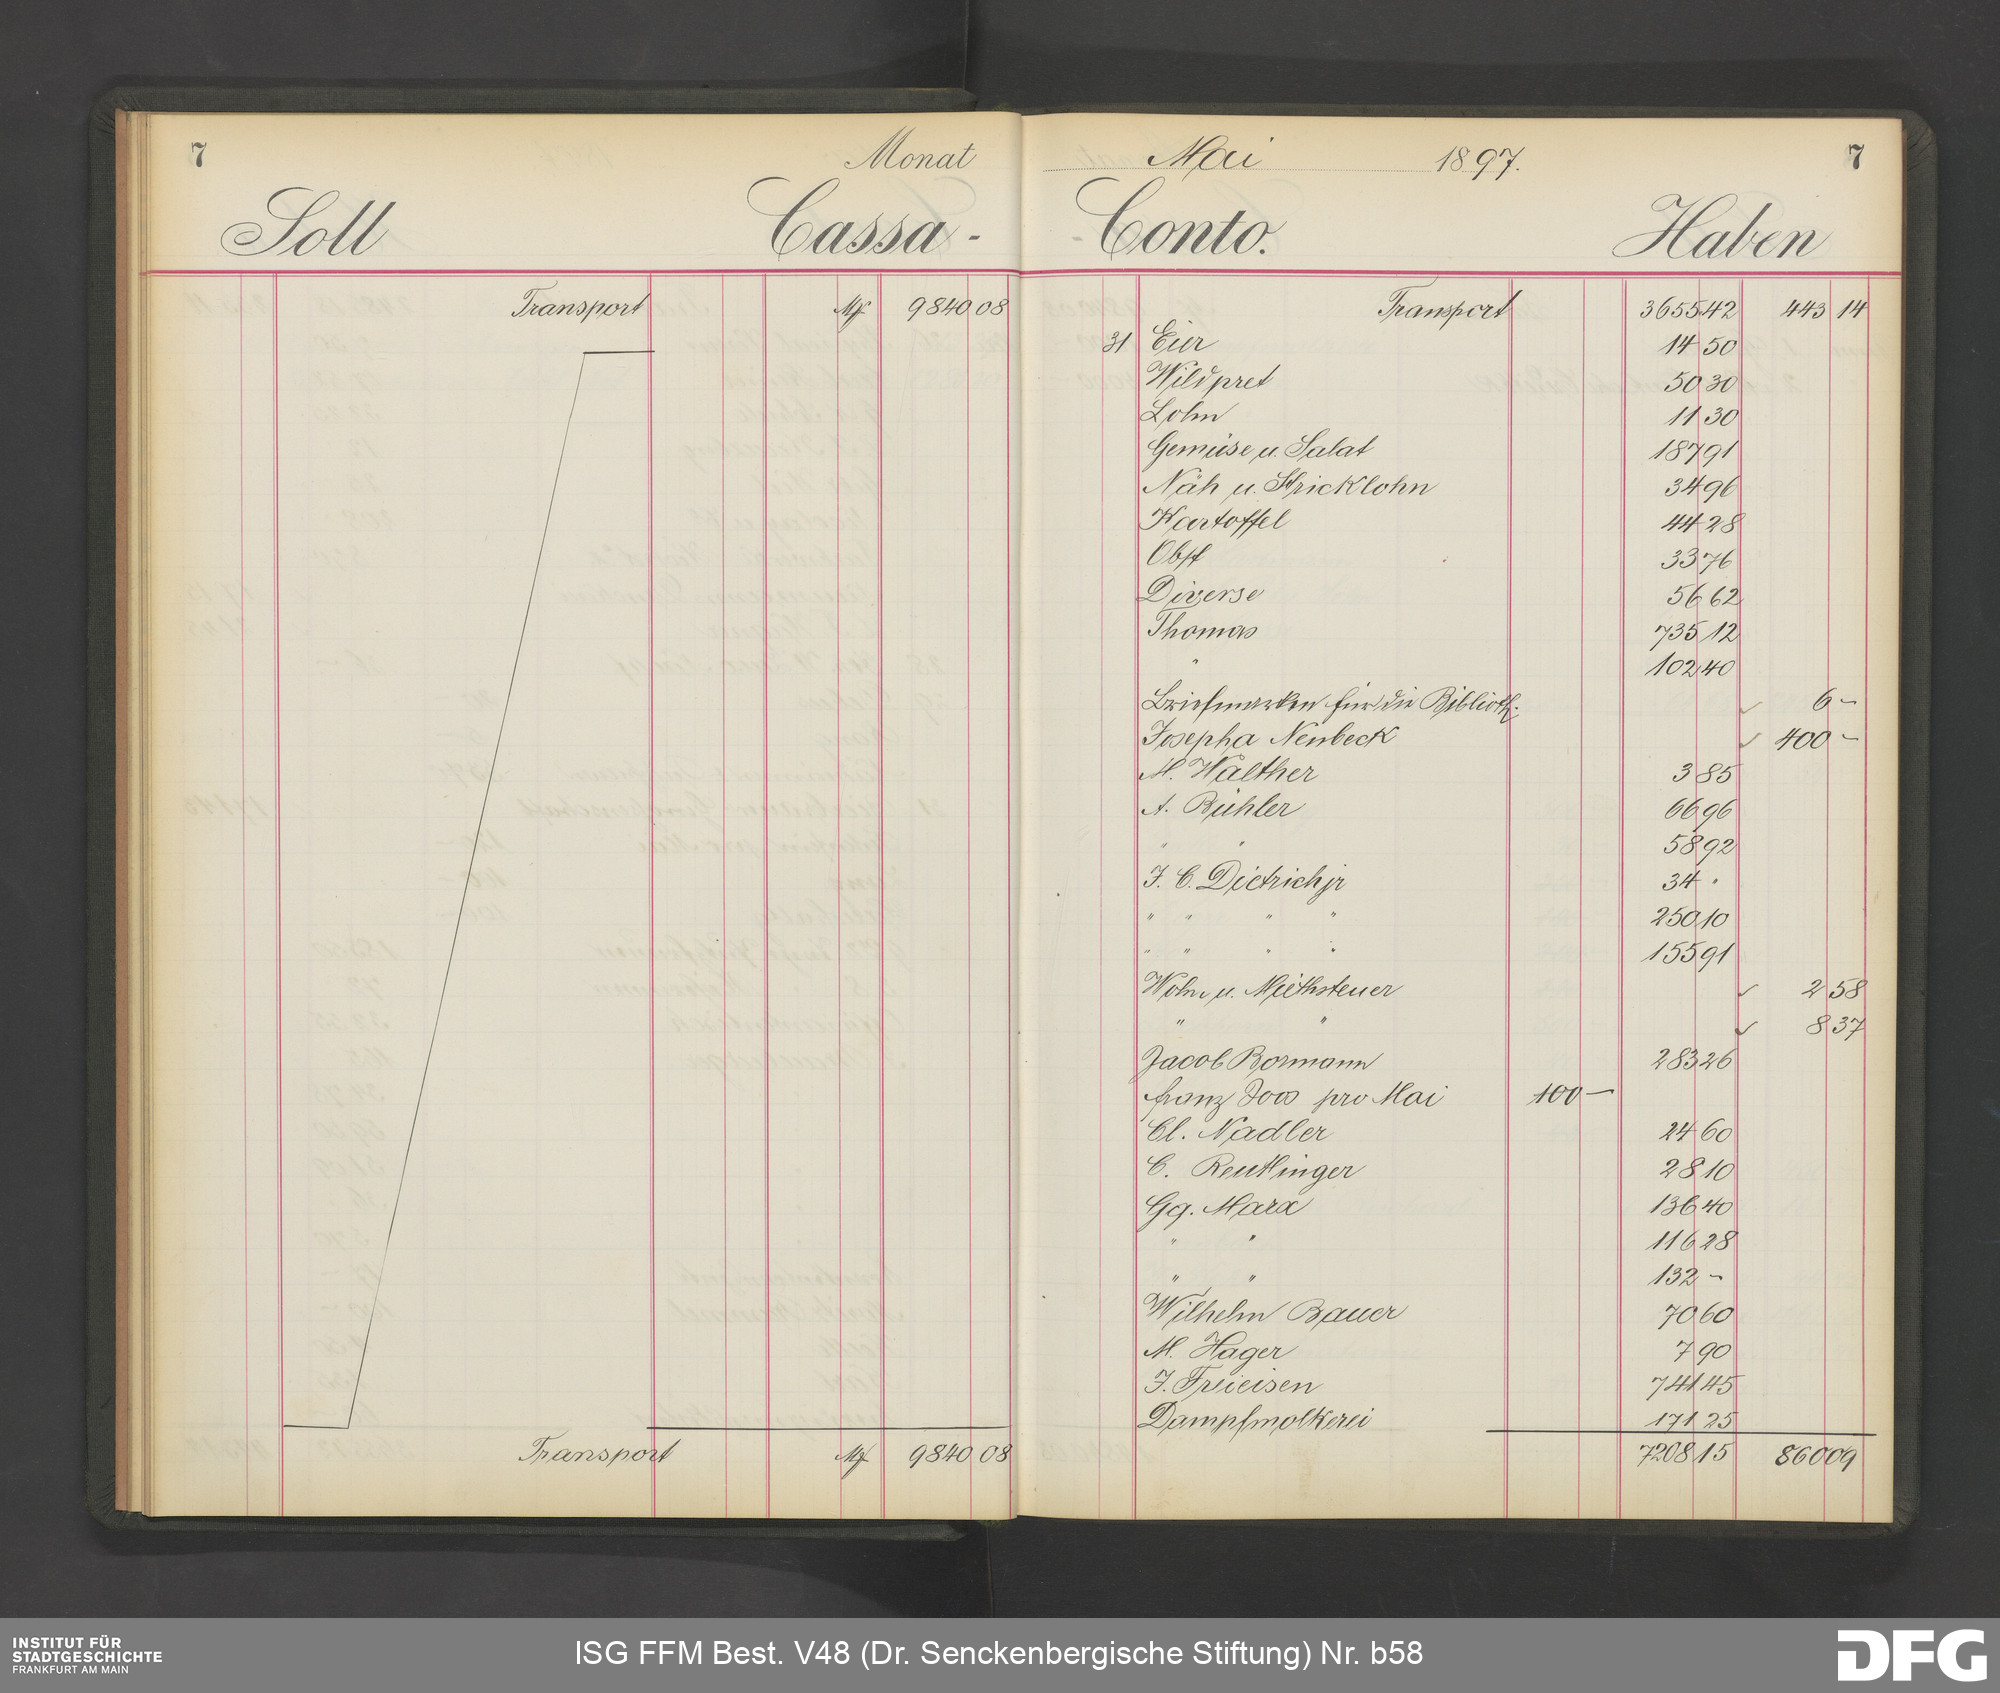 7 Monat
Soll Cassa -
Transport M 9840 08
Transport M 9840 08
Mai 1897. 7
Conto. Haben
Transport 3655 42 443 14
31 Eier 14 50
Wildpret 50 30
Lohn 11 30
Gemüse u. Salat 187 91
Näh u. Stricklohn 34 96
Kartoffel 44 28
Obst 33 76
Diverse 56 62
Thomas 735 12
" 102 40
Briefmarken für die Biblioth. ✓ 6 –
Josepha Neubeck ✓ 400 –
M. Walther 3 85
A. Bühler 66 96
" " 58 92
J. C. Dietrich jr 34 "
" " " " 250 10
" " " " 155 91
Wohn u. Miethsteuer ✓ 2 58
" " ✓ 8 37
Jacob Bormann 283 26
Franz Joos pro Mai 100 –
Cl. Nadler 24 60
C. Reutlinger 28 10
Gg. Marx 136 40
" " 116 28
" " 132 –
Wilhelm Bauer 70 60
M. Hager 7 90
J. Freieisen 741 45
Dampfmolkerei 171 25
7208 15 860 09
INSTITUT FÜR
STADTGESCHICHTE
FRANKFURT AM MAIN
ISG FFM Best. V48 (Dr. Senckenbergische Stiftung) Nr. b58
DFG